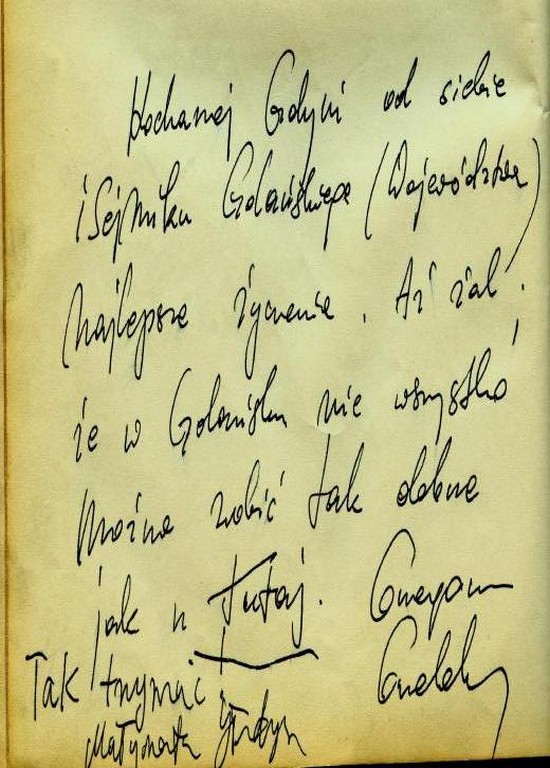 Kochanej Gdyni od siebie
i Sejmiku Gdańskiego (Województwa)
najlepsze życzenie. Aż żal,
że w Gdańsku nie wszystko
można robić tak dobrze
jak u Tutaj. Grzegorz
Tak trzymać
Małgorzata